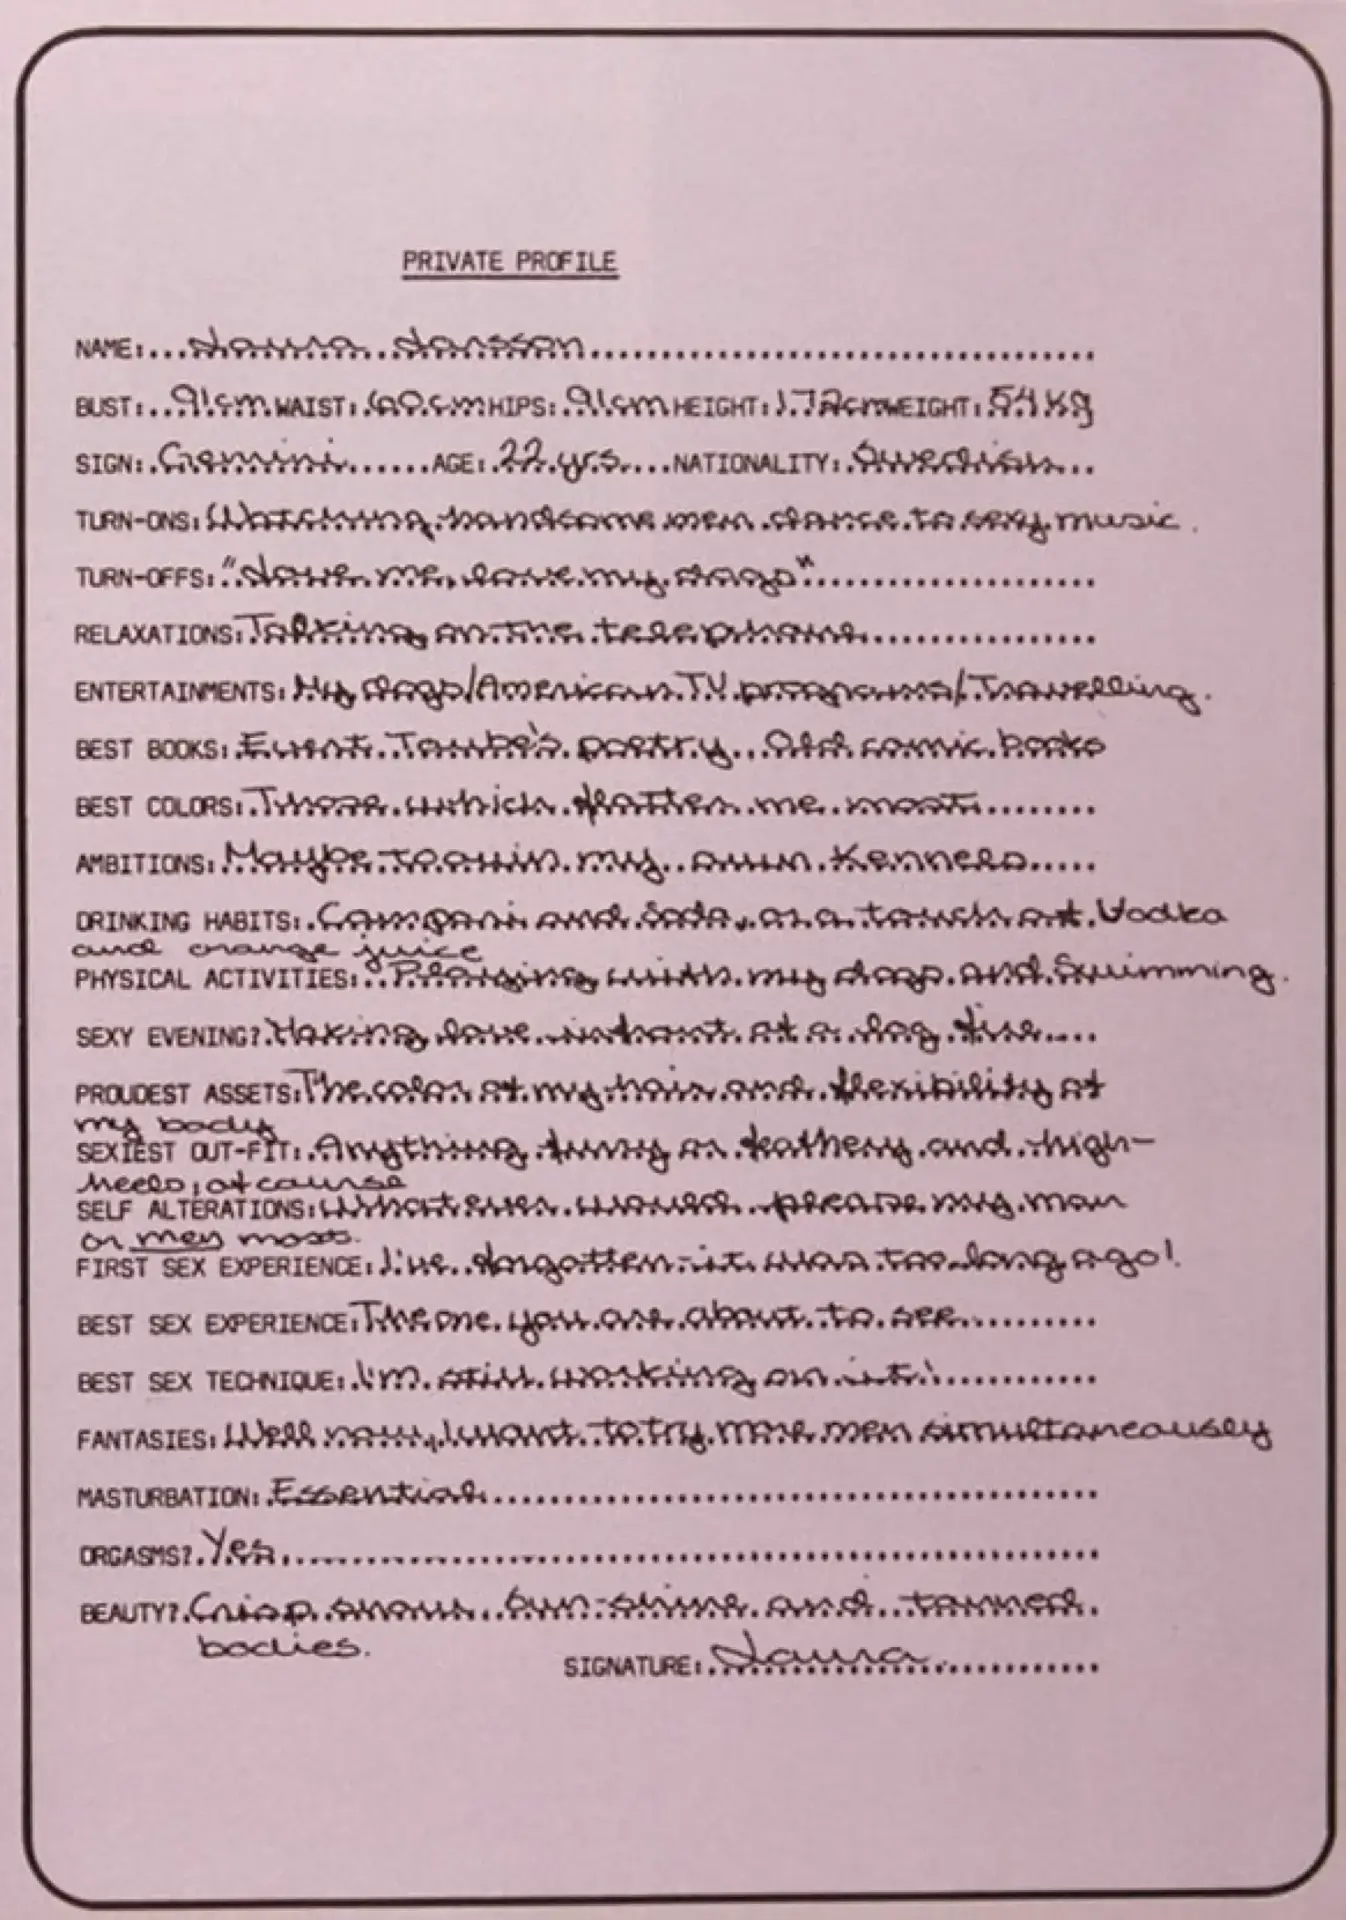 PRIVATE PROFILE
NAME: Laura Larsson
BUST: 91cm WAIST: 60cm HIPS: 91cm HEIGHT: 172cm WEIGHT: 54 kg
SIGN: Gemini AGE: 22 yrs NATIONALITY: Swedish
TURN-ONS: Watching handsome men dance to sexy music.
TURN-OFFS: "Love me, love my dogs"
RELAXATIONS: Talking on the telephone
ENTERTAINMENTS: My dogs/American TV programs/Travelling.
BEST BOOKS: Evert Taube's poetry. Old comic books
BEST COLORS: Those which flatter me most
AMBITIONS: Maybe to own my own kennels
DRINKING HABITS: Campari and Soda, or a touch of Vodka
and orange juice
PHYSICAL ACTIVITIES: Playing with my dogs and Swimming.
SEXY EVENING? Making love infront of a log fire
PROUDEST ASSETS: The color of my hair and flexibility of
my body
SEXIEST OUT-FIT: Anything furry or feathery and high-
heels, of course
SELF ALTERATIONS: Whatever would please my man
or men most.
FIRST SEX EXPERIENCE: I've forgotten - it was too long ago!
BEST SEX EXPERIENCE: The one you are about to see
BEST SEX TECHNIQUE: I'm still working on it!
FANTASIES: Well now, I want to try more men simultaneously
MASTURBATION: Essential
ORGASMS? Yes
BEAUTY? Crisp snow, sun-shine and tanned
bodies.
SIGNATURE: Laura